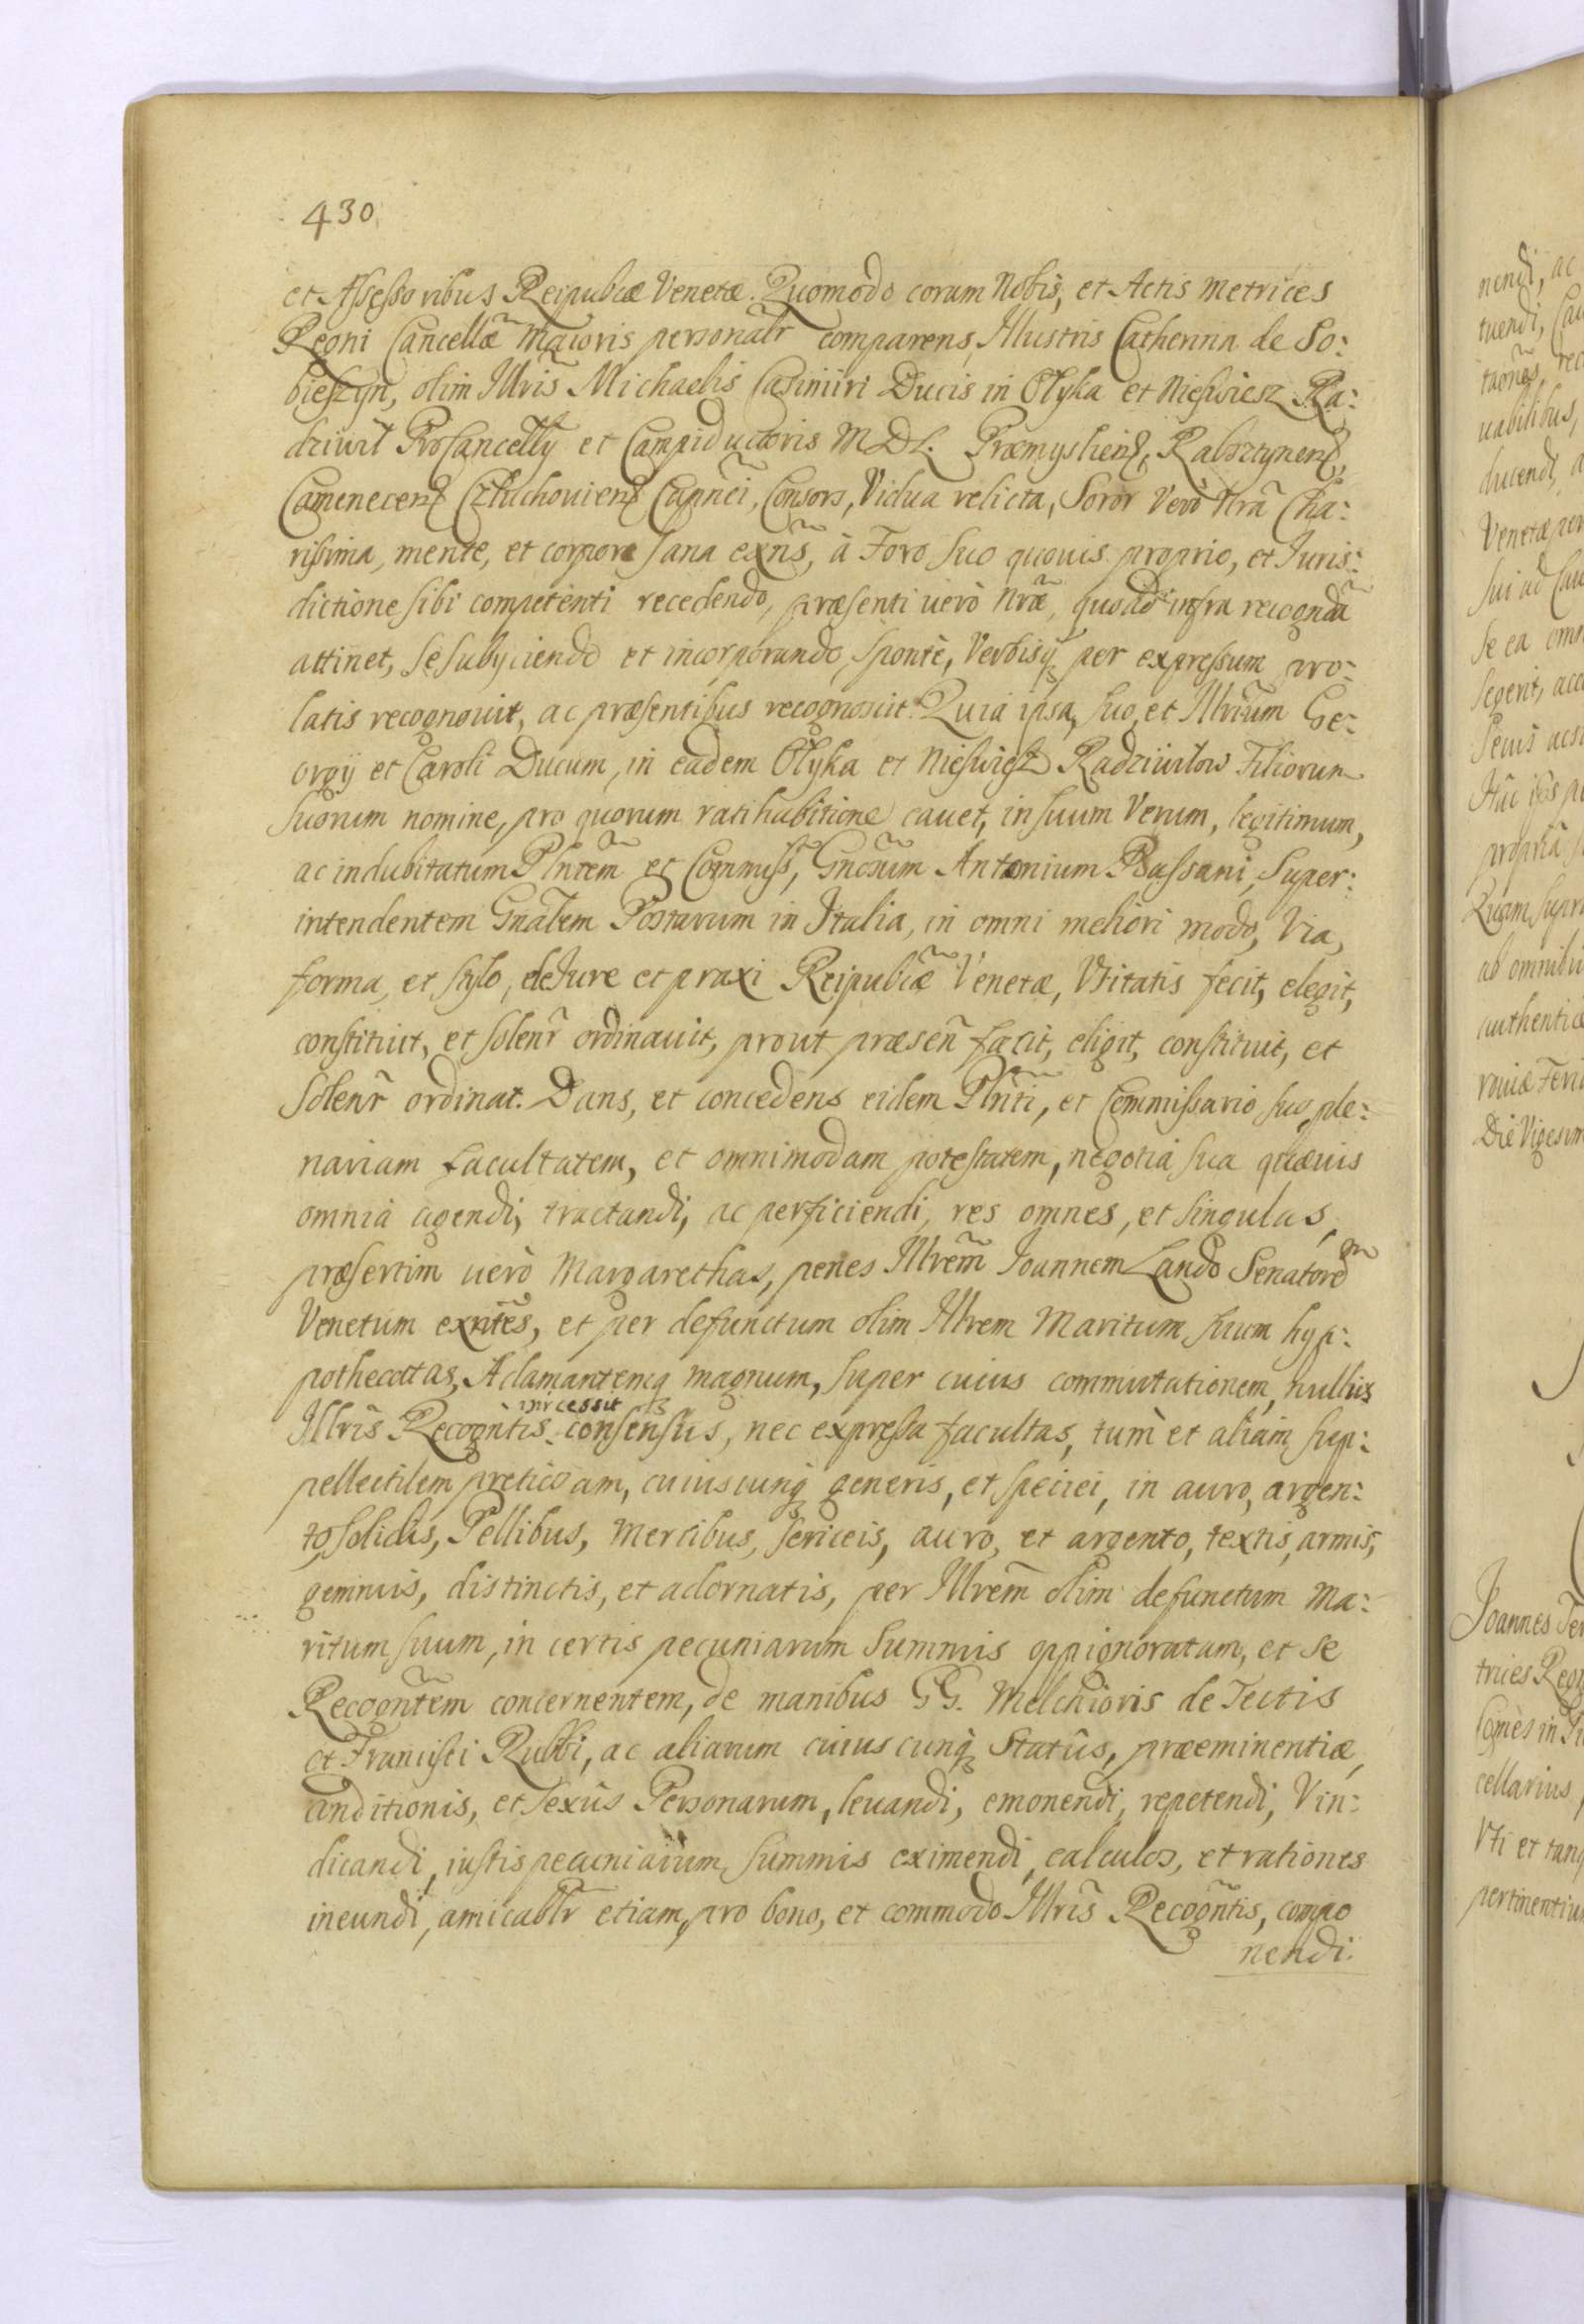 430
et Assessoribus Reipublcæ Venetæ. Quomodo coram Nobis, et Actis Metrices
Regni Cancellæ Maioris personalr comparens Illustris Catherina de So:
bieszyn, olim Illris Michaelis Casimiri Ducis in Olyka et Nieswiesz Ra:
dziwil ProCancellÿ et Campiductoris M D L. Præmysliens, Rabsztynens,
Camenecens Człuchoviens Capnei, Consors, Vidua relicta, Soror vero Nra Cha:
rissima, mente, et corpore sana exns, à Foro suo quovis proprio, et Iuris:
dictione sibi competenti recedendo, præsenti verò Nræ, quoad infra recognda
attinet, se subyciendo et incorporando, sponte, Verbisq per expressum pro:
latis recognovit, ac præsentibus recognoscit. Quia ipsa, suo, et Illrium Ge:
orgÿ et Caroli Ducum, in eadem Olyka et Nieswiesz Radziwilow Filiorum
suorum nomine, pro quorum ratihabitione cavet, in suum Verum, legitimum,
ac indubitatum Plntem et Commiss, Gnosum Antonium Bassani, Super:
intendentem Gnalem Postarum in Italia, in omni meliori modo, Via,
forma, et stylo, de Iure et praxi Reipublcæ Venetæ, Vsitatis fecit, elegit,
constituit, et solenr ordinavit, prout præsen facit, eligit, constituit, et
solenr ordinat. Dans, et concedens eidem Plnti, et Commissario suo, ple:
nariam facultatem, et omnimodam potestatem, negotia sua quævis
omnia agendi, tractandi, ac perficiendi, res omnes, et singulas,
præsertim verò Margarethas, penes Illrem Ioannem Lando Senatorem
Venetum exntes, et per defunctum olim Illrem Maritum suum hyp:
pothecatas, Adamantemq magnum, super cuius commutationem, nullus
Illris Recogntis intcessit consensus, nec expressa facultas, tum et aliam sup:
pellectilem pretiosam, cuiuscunq generis, et speciei, in auro, argen:
to, solidis, Pellibus, Mercibus, sericeis, auro, et argento, textis, armis,
gemmis, distinctis, et adornatis, per Illrem olim defunctum Ma:
ritum suum, in certis pecuniarum Summis oppignoratam, et se
Recogntem concernentem, de manibus GG. Melchioris de Tectis
et Francisci Rubbi, ac aliarum cuiuscunq Status, præeminentiæ,
conditionis, et sexus Personarum, levandi, emonendi, repetendi, Vin:
dicandi, iustis pecuniarum summis eximendi, calculos, et rationes
ineundi, amicablr etiam, pro bono, et commodo Illris Recogntis, compo
nendi.